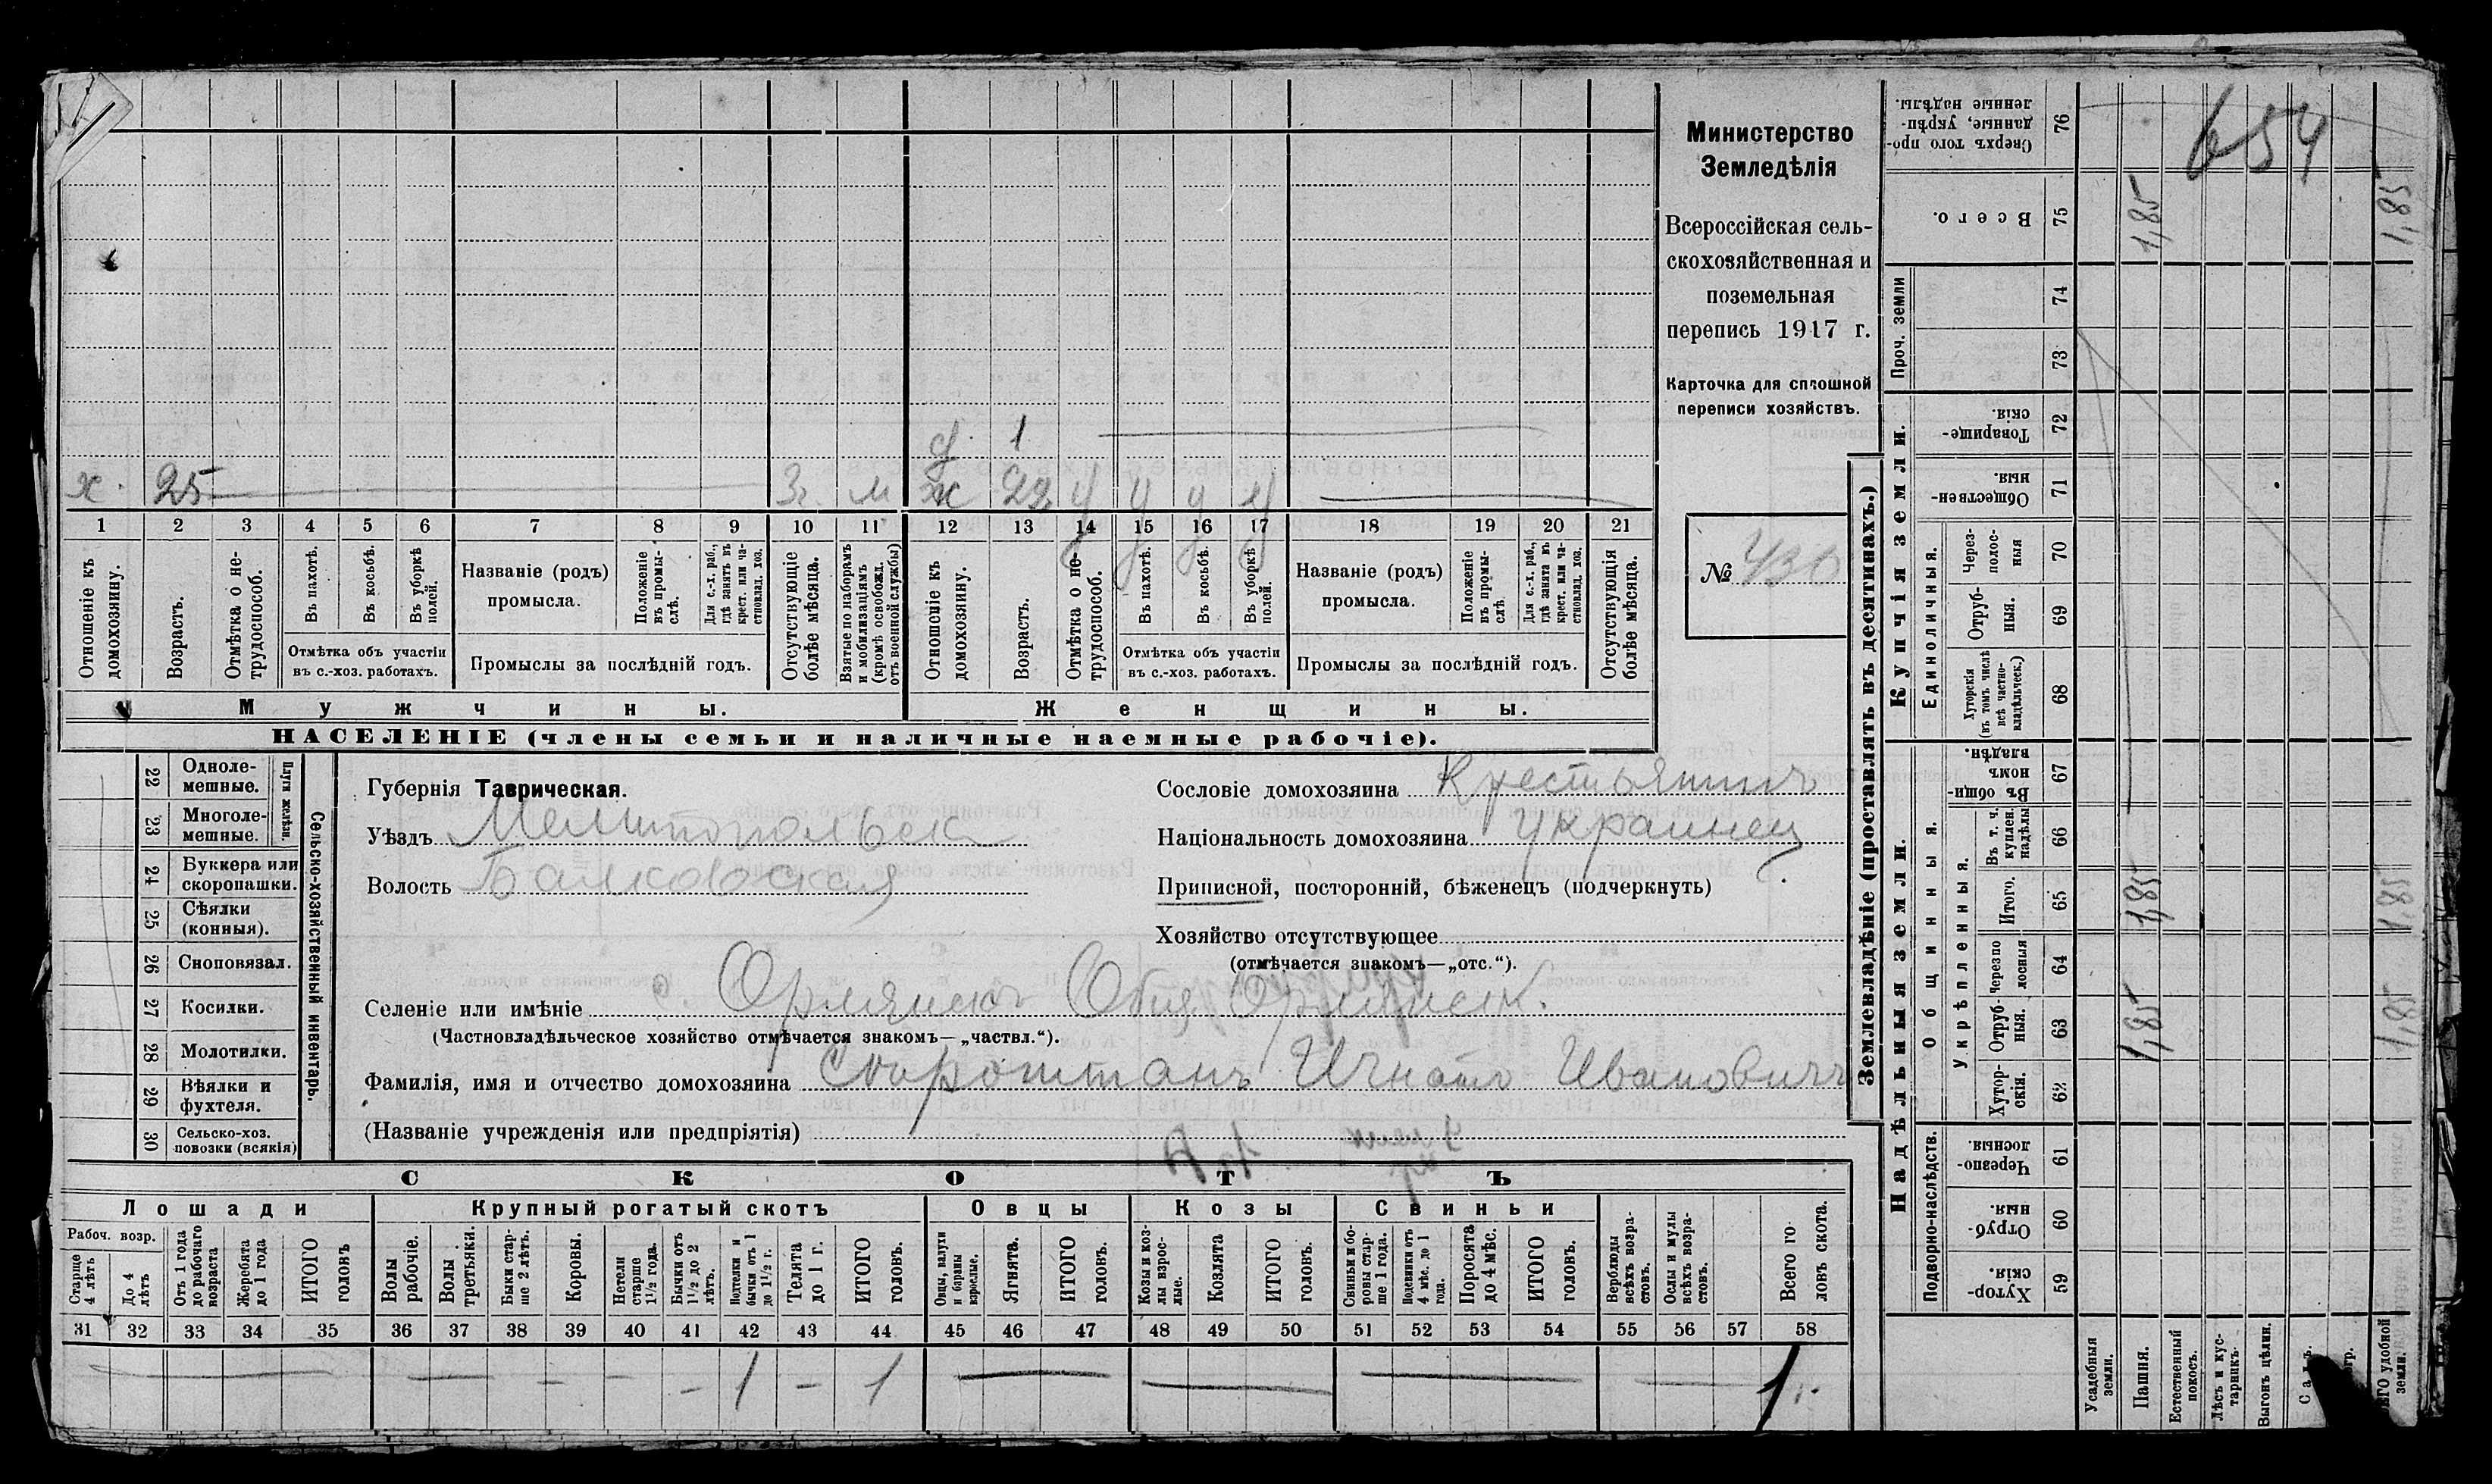 Министерство
Земледѣлія
Всероссійская сель-
скохозяйственная и
поземельная
перепись 1917 г.
Карточка для сплошной
переписи хозяйствъ.
№
654
д. 1
х. 25 3 г. м ж 22
1 2 3 4 5 6 7 8 9 10 11 12 13 14 15 16 17 18 19 20 21
Отношеніе къ домохозяину.
Возрастъ.
Отмѣтка о не-трудоспособ.
Въ пахотѣ.
Въ косьбѣ.
Въ уборкѣ полей.
Отмѣтка объ участіи
въ с.-хоз. работахъ.
Названіе (родъ)
промысла.
Положеніе въ промы-слѣ.
Для с.-х. раб., гдѣ занятъ въ крест. или ча-стновлад. хоз.
Промыслы за послѣдній годъ.
Отсутствующіе болѣе мѣсяца.
Взятые по наборамъ и мобилизаціямъ (кромѣ освобожд. отъ военной службы)
Отношеніе къ домохозяину.
Возрастъ.
Отмѣтка о не-трудоспособ.
Въ пахотѣ.
Въ косьбѣ.
Въ уборкѣ полей.
Отмѣтка объ участіи
въ с.-хоз. работахъ.
Названіе (родъ)
промысла.
Положеніе въ промы-слѣ.
Для с.-х. раб., гдѣ занята въ крест. или ча-стновлад. хоз.
Промыслы за послѣдній годъ.
Отсутствующія болѣе мѣсяца.
Мужчины.
Женщины.
НАСЕЛЕНІЕ (члены семьи и наличные наемные рабочіе).
Сельско-хозяйственный инвентарь.
Плуги желѣзн.
22 Одноле-мешные.
23 Многоле-мешные.
24 Буккера или скоропашки.
25 Сѣялки (конныя).
26 Сноповязал.
27 Косилки.
28 Молотилки.
29 Вѣялки и фухтеля.
30 Сельско-хоз. повозки (всякія)
Губернія Таврическая.
Уѣздъ Мелитопольск
Волость Балковская
Сословіе домохозяина Крестьянинъ
Національность домохозяина украинец
Приписной, посторонній, бѣженецъ (подчеркнуть)
Хозяйство отсутствующее
(отмѣчается знакомъ—„отс.“).
Селеніе или имѣніе с. Орлянскъ Общ. Орлянск.
(Частновладѣльческое хозяйство отмѣчается знакомъ—„частвл.“).
Фамилія, имя и отчество домохозяина Игнатъ Ивановичъ
(Названіе учрежденія или предпріятія)
СКОТЪ
Лошади
Крупный рогатый скотъ
Овцы
Козы
Свиньи
Рабоч. возр.
Старще 4 лѣтъ
До 4 лѣтъ
Отъ 1 года до рабочаго возраста
Жеребята до 1 года
ИТОГО головъ
Волы рабочіе.
Волы третьяки.
Быки стар-ше 2 лѣтъ.
Коровы.
Нетели старше 1½ года.
Бычки отъ 1½ до 2 лѣтъ.
Подтелки и бычки отъ 1 до 1½ г.
Телята до 1 г.
ИТОГО головъ.
Овцы, валухи и бараны взрослые.
Ягнята.
ИТОГО головъ.
Козы и коз-лы взрос-лые.
Козлята
ИТОГО головъ.
Свиньи и бо-ровы стар-ше 1 года.
Подсвинки отъ 4 мѣс. до 1 года.
Поросята до 4 мѣс.
ИТОГО головъ.
Верблюды всѣхъ возра-стовъ.
Ослы и мулы всѣхъ возра-стовъ.
Всего го-ловъ скота.
31 32 33 34 35 36 37 38 39 40 41 42 43 44 45 46 47 48 49 50 51 52 53 54 55 56 57 58
— — — — — 1 — 1 — — — — 1
Землевладѣніе (проставлять въ десятинахъ.)
Купчія земли.
Надѣльныя земли.
Сверхъ того про-данные, укрѣп-ленные надѣлы. 76
Всего. 75 1,85 1,85
Проч. земли 74 73
Товарище-скія. 72
Обществен-ныя. 71
Единоличныя.
Через-полос-ныя 70
Отруб-ныя. 69
Хуторскія (въ томъ числѣ всѣ частно-владѣльческ.) 68
Общинныя.
Въ общи-номъ владѣн. 67
Укрѣпленныя.
Въ т. ч. куплен. надѣлы 66
Итого. 65 1,85 1,85
Черезпо лосныя 64
Отруб-ныя. 63 1,85 1,85
Хутор-скія. 62
Подворно-наслѣдств.
Черезпо-лосныя. 61
Отруб-ныя. 60
Хутор-скія. 59
Усадебныя земли.
Пашня.
Естественный покосъ.
Лѣсъ и кус-тарникъ.
Выгонъ цѣлин.
удобной земли.